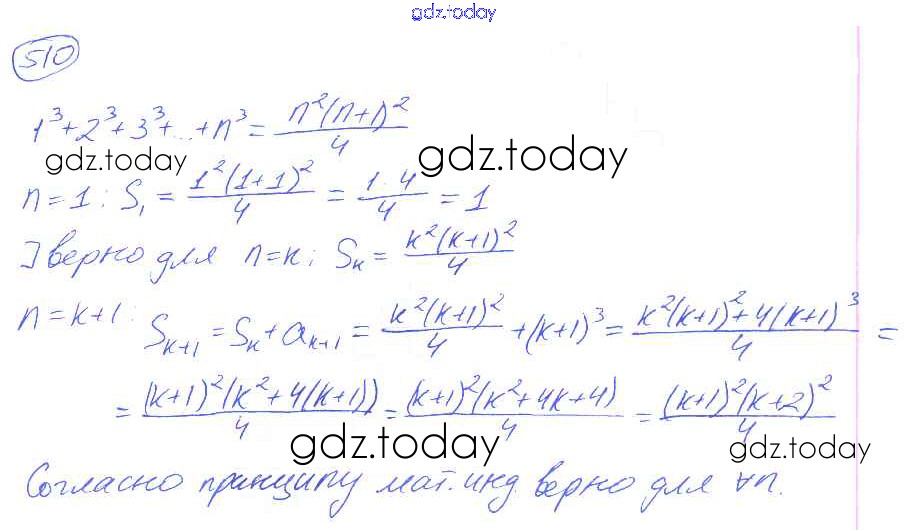 gdz.today
510
1³+2³+3³+...+n³ = n²(n+1)²/4
gdz.today
gdz.today
n=1: S₁ = 1²(1+1)²/4 = 1·4/4 = 1
] верно для n=k; Sₖ = k²(k+1)²/4
n=k+1: Sₖ₊₁ = Sₖ + aₖ₊₁ = k²(k+1)²/4 + (k+1)³ = k²(k+1)²+4(k+1)³/4 =
= (k+1)²(k²+4(k+1))/4 = (k+1)²(k²+4k+4)/4 = (k+1)²(k+2)²/4
gdz.today
gdz.today
Согласно принципу мат. инд. верно для ∀n.